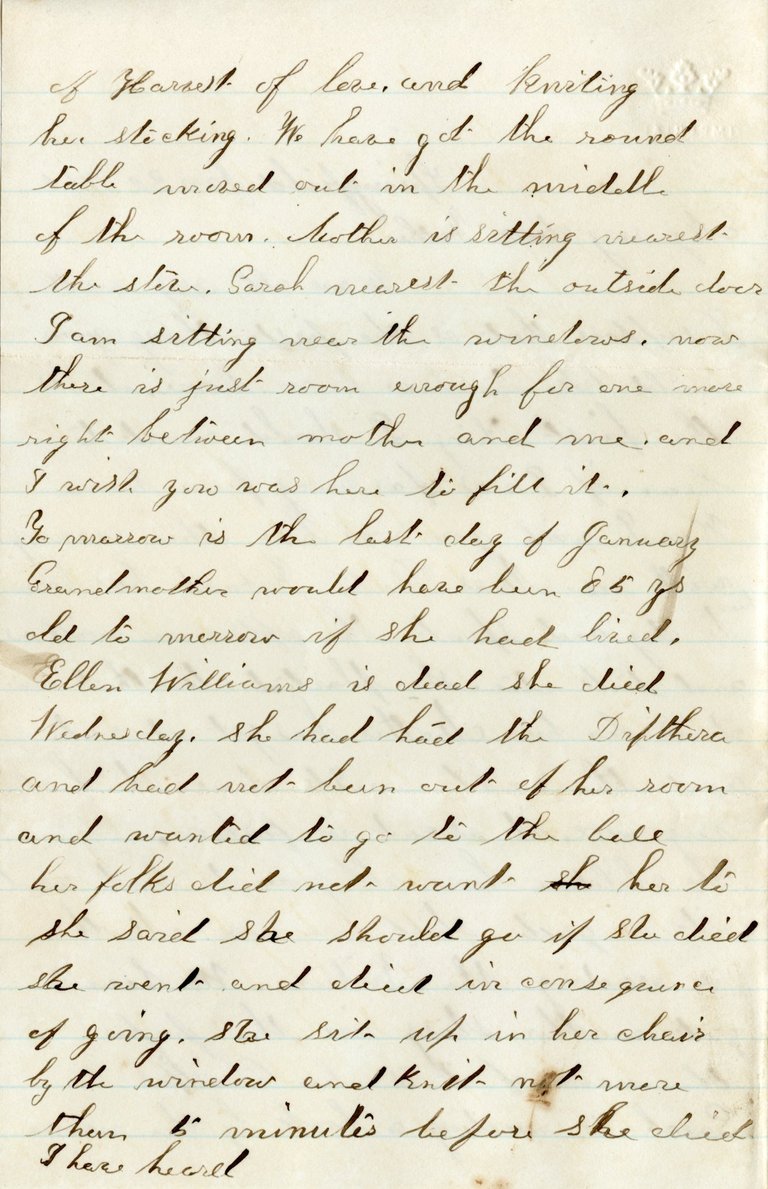 of Harvest of love, and Kniting
her stocking. We have got the round
table moved out in the middle
of the room. Mother is sitting nearest
the stove. Sarah nearest the outside door
I am sitting near the windows. now
there is just room enough for one more
right between mother and me. and
I wish you was here to fill it.
To morrow is the last day of January
Grandmother would have been 85 ys
old to morrow if she had lived.
Ellen Williams is dead she died
Wednesday. she had had the Dipthera
and had not been out of her room
and wanted to go to the ball
her folks did not want sh her to
she said she should go if she died
she went and died in consequence
of going. she sit up in her chair
by the window and Knit not more
than 5 minutes before she died
I have heard